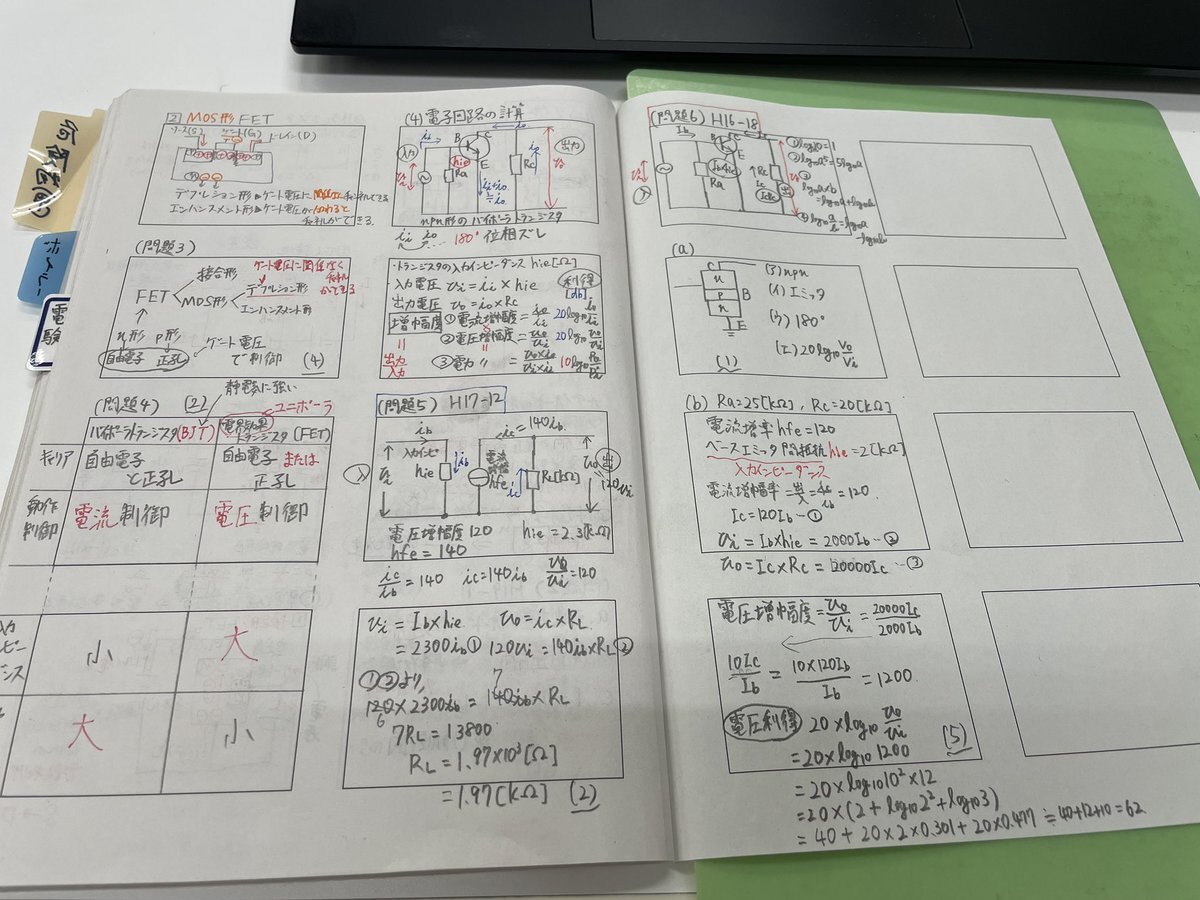 何
ボイル
電
験
[2] MOS形 FET
ソース(S)
ゲート(G)
ドレイン(D)
デプレション形
エンハンスメント形
(問題3)
FET
接合形
MOS形
ゲート電圧に関係なく
デプレション形
エンハンスメント形
n形 p形
自由電子 正孔
ゲート電圧
で制御
(4)
(問題4) (2)
静電気に強い
ユニポーラ
バイポーラトランジスタ(BJT)
電界効果
トランジスタ(FET)
キャリア
自由電子
と正孔
自由電子 または
正孔
動作
制御
電流制御
電圧制御
小
大
大
小
(4) 電子回路の計算
入力
出力
B
C
E
hie
Ra
Rc
npn形のバイポーラトランジスタ
180° 位相ズレ
・トランジスタの入力インピーダンス hie[Ω]
・入力電圧 vi=ii×hie
利得
[db]
出力電圧 vo=io×Rc
増幅度
①電流増幅度=io/ii 20log10 io/ii
②電圧増幅度=vo/vi 20log10 vo/vi
③電力 〃 =vo×io/vi×ii 10log10 Po/Pi
出力
入力
(問題5) H17-12
ib
ic=140ib
hie
hfe
RL[kΩ]
電圧増幅度120 hie=2.3[kΩ]
hfe=140
ic/ib=140 ic=140ib vo/vi=120
vi=Ib×hie vo=ic×RL
=2300ib① 120vi=140ib×RL②
①②より,
120×2300ib=140ib×RL
6
7
7RL=13800
RL=1.97×10³[Ω]
=1.97[kΩ] (2)
(問題6) H16-18
Ib
B
C
E
Ra
Rc
Ic
①log10 10=1
②log10 a⁵=5log10 a
③
log10 a×b
=log10 a+log10 b
④log10 a/b=log10 a
-log10 b
(a)
C
n
P
n
B
E
(ア)npn
(イ)エミッタ
(ウ)180°
(エ)20log10 Vo/Vi
(1)
(b) Ra=25[kΩ], Rc=20[kΩ]
電流増幅率hfe=120
ベース・エミッタ間抵抗hie=2[kΩ]
入力インピーダンス
電流増幅率=出/入=ic/ib=120.
Ic=120Ib-①
vi=Ib×hie=2000Ib-②
vo=Ic×Rc=20000Ic-③
電圧増幅度=vo/vi=20000Ic/2000Ib
10Ic/Ib=10×120Ib/Ib=1200.
電圧利得 20×log10 vo/vi
(5)
=20×log10 1200
=20×log10 10²×12
=20×(2+log10 2²+log10 3)
=40+20×2×0.301+20×0.477≒40+12+10=62